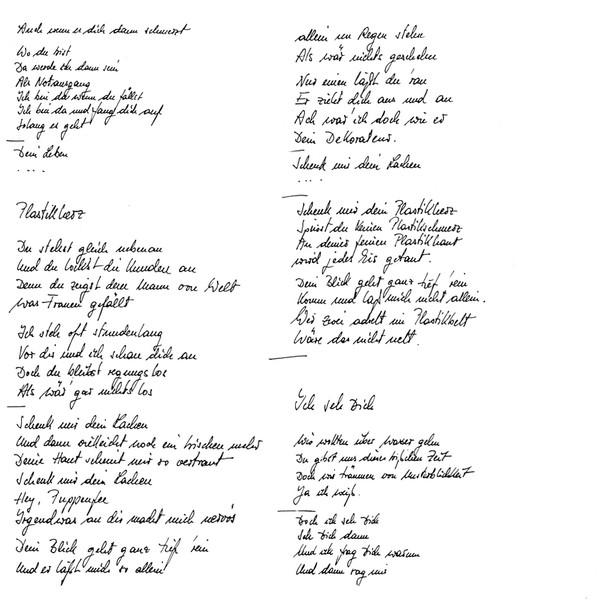 Auch wenn er dich dann schmerzt
Wo du bist
Da werde ich dann sein
Als Notausgang
Ich bin da wenn du fällst
Ich bin da und fang dich auf
Solang es geht
Dein Leben
....
Plastikherz
Du stehst gleich nebenan
Und du lockst die Kunden an
Denn du zeigst der Mann von Welt
was Frauen gefällt
Ich steh oft stundenlang
Vor dir und ich schau dich an
Doch du bleibst regungslos
Als wär' gar nichts los
Schenk mir dein Lachen
Und dann vielleicht noch ein bisschen mehr
Deine Haut scheint mir so vertraut
Schenk mir dein Lachen
Hey, Puppenfee
Irgendwas an dir macht mich nervös
Dein Blick geht ganz tief 'rein
Und er läßt mich so allein
allein im Regen stehn
Als wär nichts geschehn
Nur einen läßt du 'ran
Er zieht dich aus und an
Ach wär' ich doch wie er
Dein Dekorateur.
Schenk mir dein Lachen
....
Schenk mir dein Plastikherz
Spürst du keinen Plastikschmerz
An deiner feinen Plastikhaut
wird jedes Eis getaut.
Dein Blick geht ganz tief 'rein
Komm und laß mich nicht allein.
Wir zwei im Plastikbett
Wäre das nicht nett.
Ich seh Dich
Wir wollten über Wasser gehn
Du gibst mir deine Zeit
Doch wir träumen von Unsterblichkeit
Ja ich weiß.
Doch ich seh Dich
Seh Dich dann
Und ich frag Dich warum
Und dann sag mir